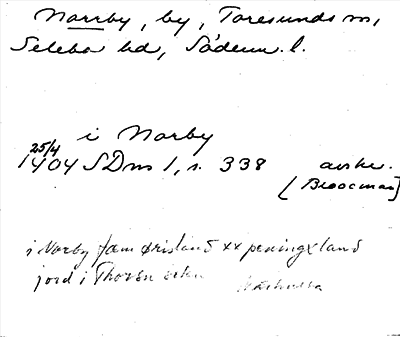 Norrby, by, Toresunds sn,
Selebo hd, Söderm. l.
i Norby
25/4
1404 SDns 1, s. 338 avskr.
[Broocman]
i Norby fam örisland xx peningxland
jord i Thorsn